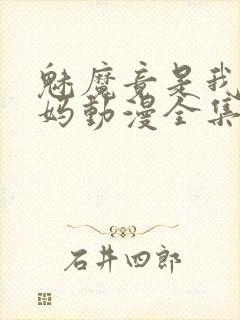 魅魔竟是我
妈動漫全集
石井四郎